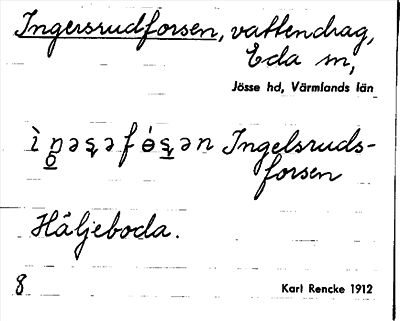 Ingersrudforsen, vattendrag,
Eda sn,
Jösse hd, Värmlands län
Ingelsruds-
forsen
Häljeboda.
8
Karl Rencke 1912